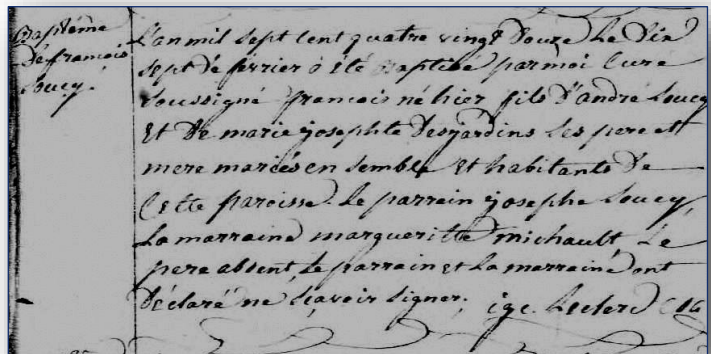 Baptême
De francois
Soucy.
L'an mil sept cent quatre vingt Douze Le Dix
sept de fevrier a été Baptisé par moi Curé
Soussigné francois né hier fils D'andré Soucy
Et De marie josephte Desjardins Les pere et
mere mariés en semble et habitants De
Cette paroisse. Le parrain josephe Soucy,
La marraine margueritte michault, Le
pere absent, Le parrain et La marraine ont
Déclaré ne Sçavoir Signer. Leclerc